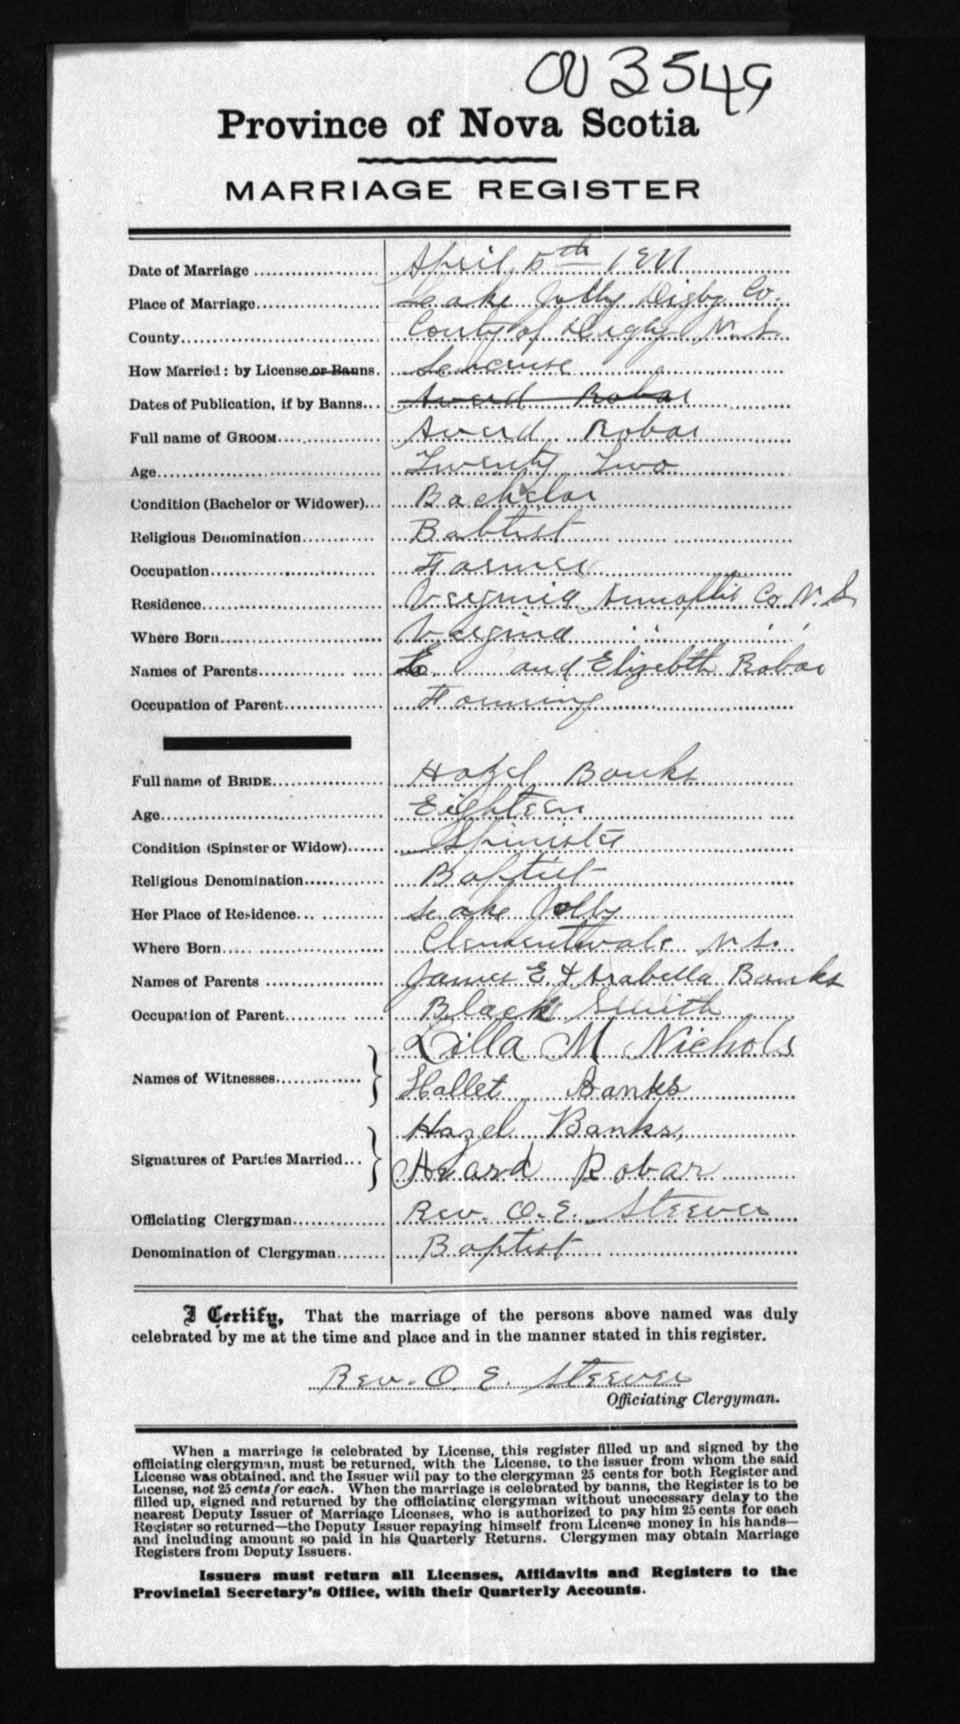 3549
Province of Nova Scotia
MARRIAGE REGISTER
Date of Marriage April 5th 1911
Place of Marriage Lake Jolly Digby Co.
County County of Digby N.S.
How Married: by License or Banns. Lincense
Dates of Publication, if by Banns Averd Robar
Full name of GROOM Averd Robar
Age Twenty Two
Condition (Bachelor or Widower) Bachelor
Religious Denomination Babtist
Occupation Farmer
Residence Virginia Co N.S
Where Born " "
Names of Parents and Elizebth Robar
Occupation of Parent Farming
Full name of BRIDE Hazel Banks
Age Eighteen
Condition (Spinster or Widow) Spinster
Religious Denomination Baptist
Her Place of Residence Lake Jolly
Where Born Clementsvale N.S.
Names of Parents James E. & Arabella Banks
Occupation of Parent Black Smith
Names of Witnesses Lilla M Nichols
Hallet Banks
Signatures of Parties Married Hazel Banks,
Avard Robar
Officiating Clergyman Rev. O. E. Steeves
Denomination of Clergyman Baptist
I Certify, That the marriage of the persons above named was duly
celebrated by me at the time and place and in the manner stated in this register.
Rev. O. E. Steeves
Officiating Clergyman.
When a marriage is celebrated by License, this register filled up and signed by the
officiating clergyman, must be returned, with the License, to the issuer from whom the said
License was obtained, and the Issuer will pay to the clergyman 25 cents for both Register and
License, not 25 cents for each. When the marriage is celebrated by banns, the Register is to be
filled up, signed and returned by the officiating clergyman without unecessary delay to the
nearest Deputy Issuer of Marriage Licenses, who is authorized to pay him 25 cents for each
Register so returned—the Deputy Issuer repaying himself from License money in his hands—
and including amount so paid in his Quarterly Returns. Clergymen may obtain Marriage
Registers from Deputy Issuers.
Issuers must return all Licenses, Affidavits and Registers to the
Provincial Secretary's Office, with their Quarterly Accounts.